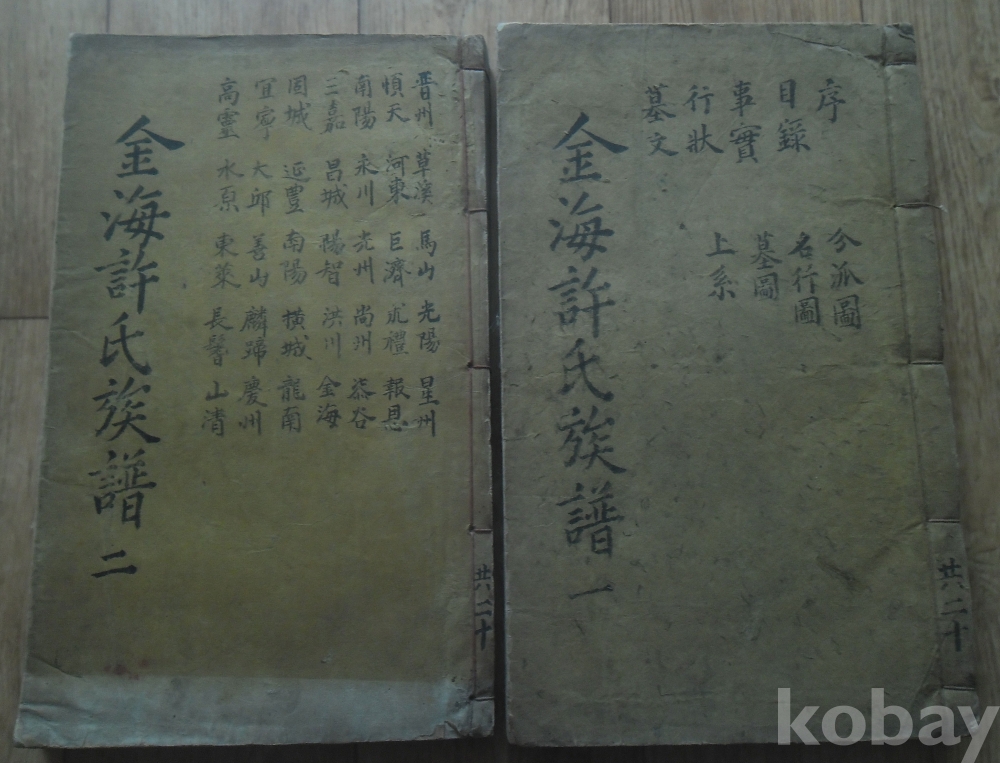 序
目錄
事實
行狀
墓文
分派圖
名行圖
墓圖
上系
金海許氏族譜 一
共二十
晋州 草溪 馬山 光陽 星州
順天 河東 巨濟 求禮 報恩
南陽 永川 光州 尚州 柒谷
三嘉 昌城 陽智 洪川 金海
固城 延豊 南陽 橫城 龍南
宜寧 大邱 善山 麟蹄 慶州
高靈 水原 東萊 長鬐 山清
金海許氏族譜 二
共二十
kobay